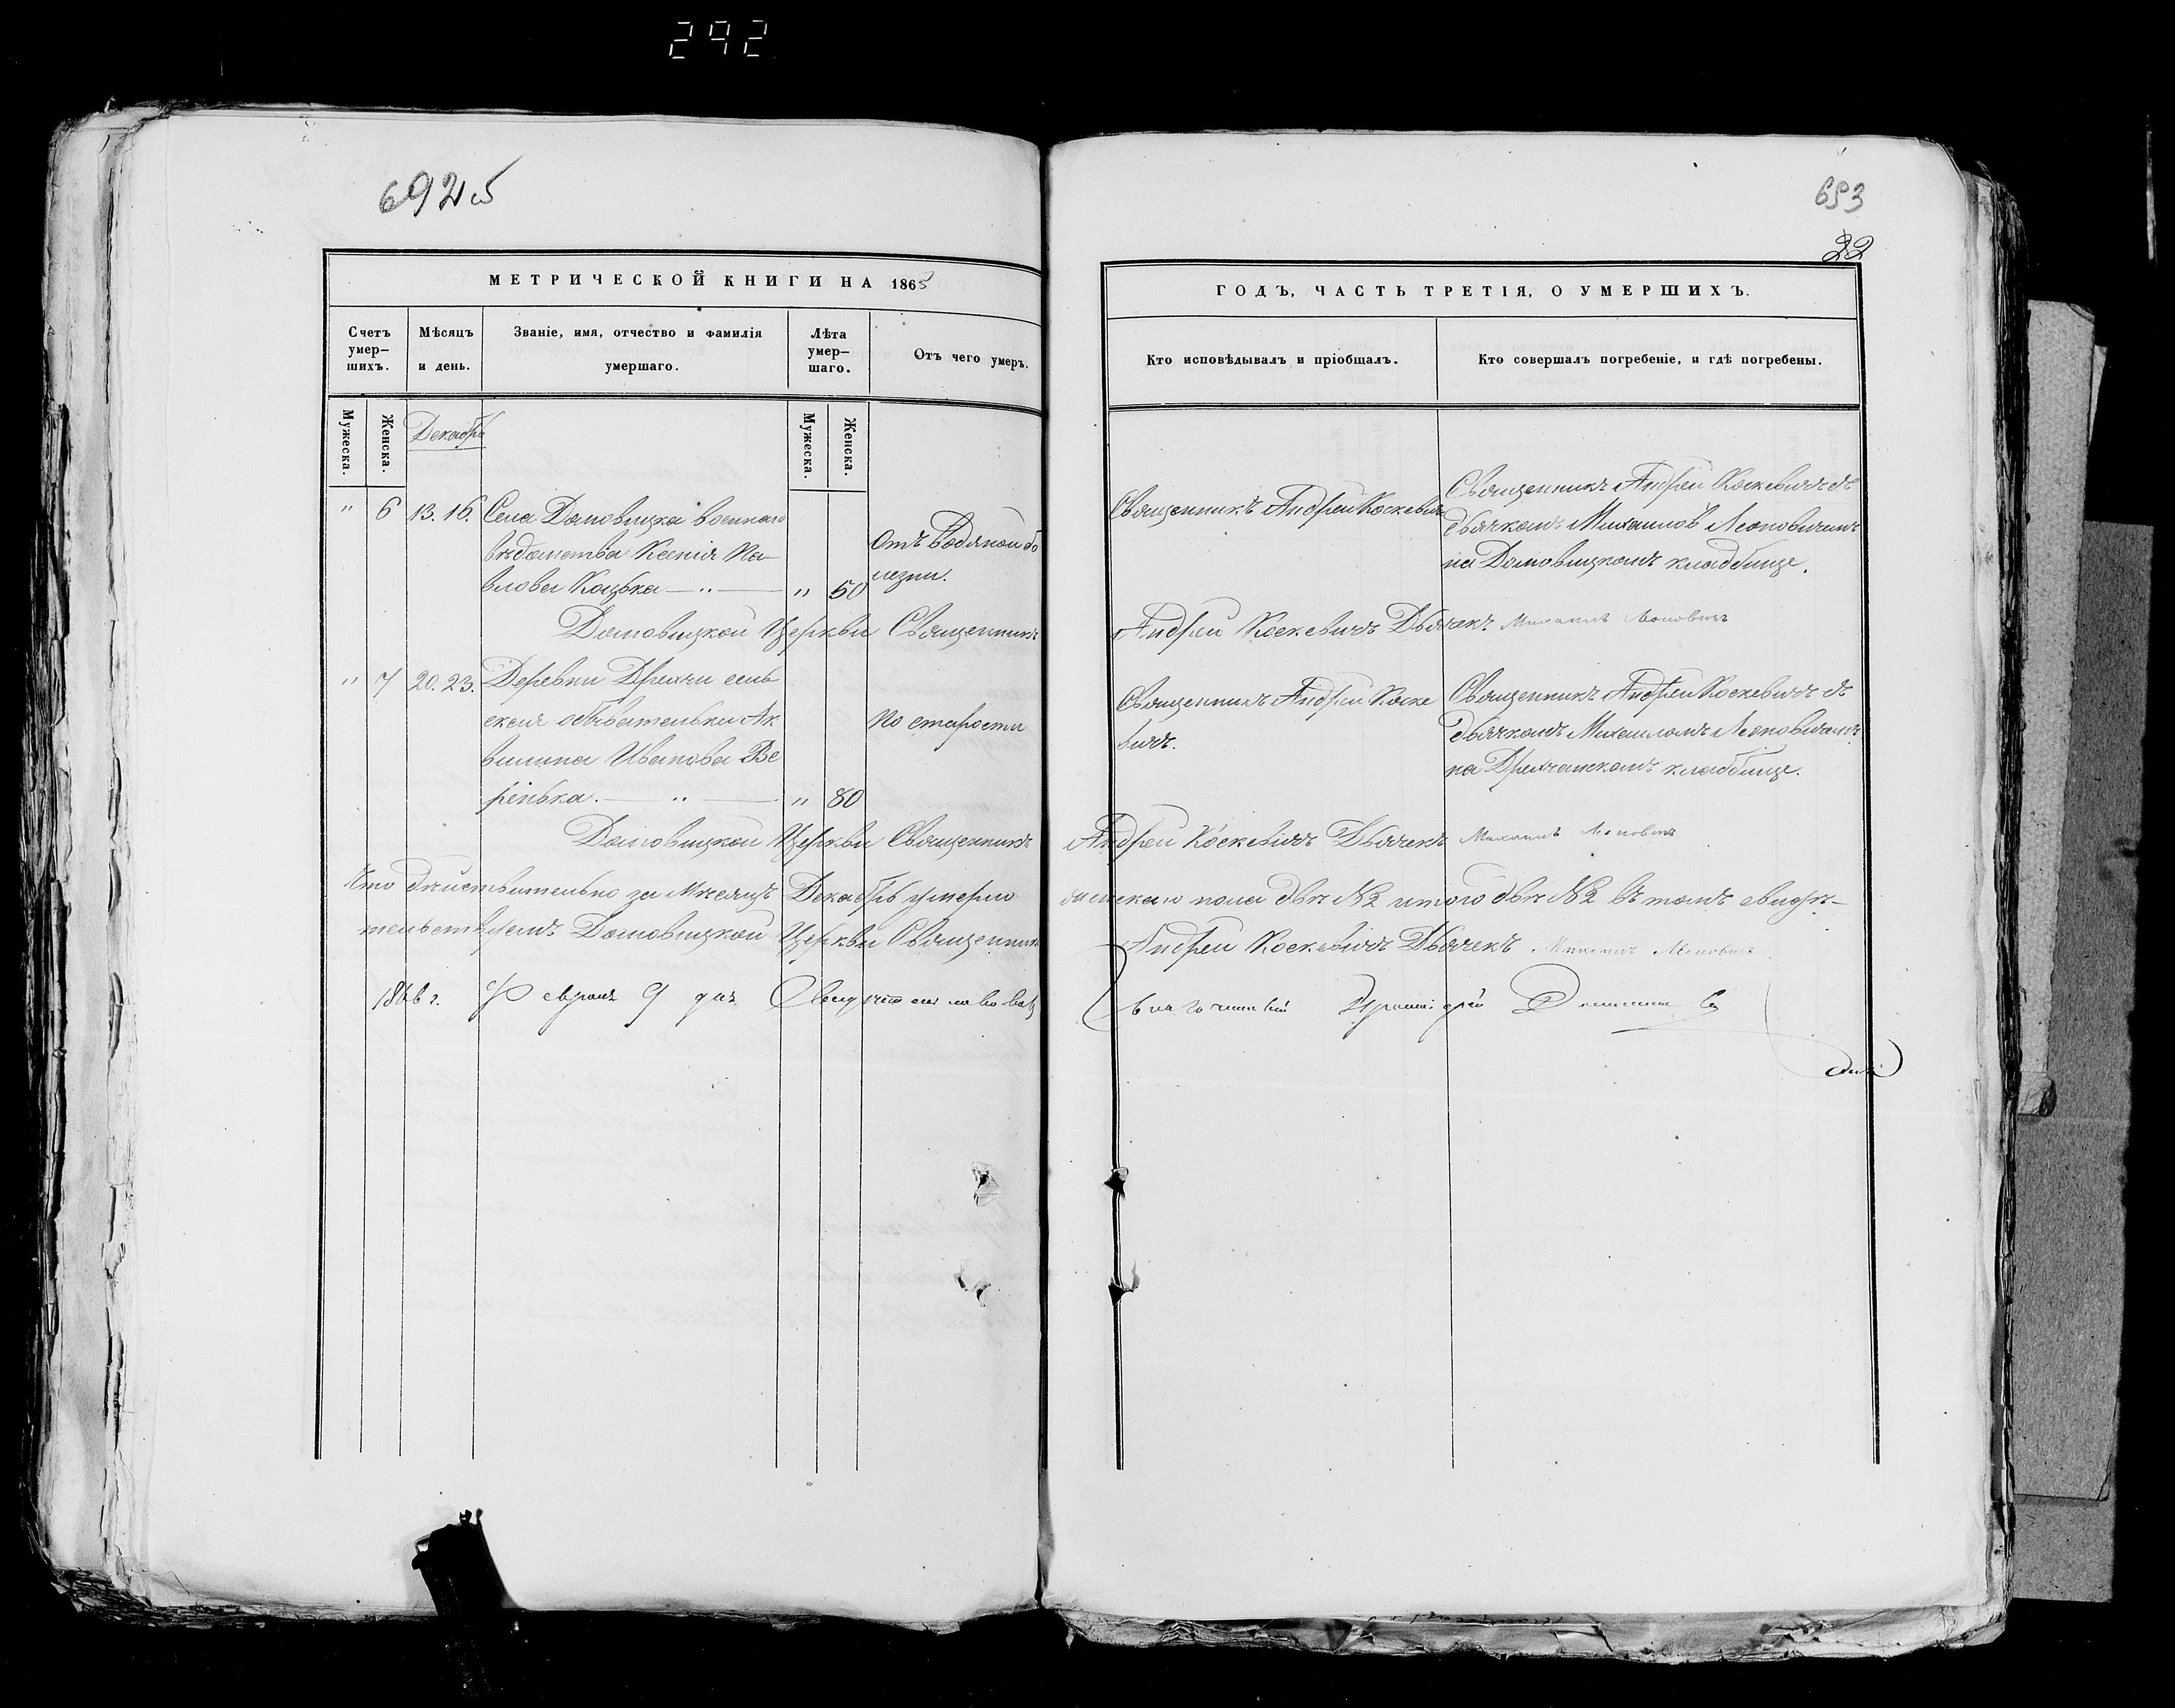 292
692 об
693
22
МЕТРИЧЕСКОЙ КНИГИ НА 1865
ГОДЪ, ЧАСТЬ ТРЕТІЯ, О УМЕРШИХЪ.
Счетъ умер-
шихъ.
Мѣсяцъ
и день.
Званіе, имя, отчество и фамилія
умершаго.
Лѣта
умер-
шаго.
Отъ чего умеръ.
Кто исповѣдывалъ и пріобщалъ.
Кто совершалъ погребеніе, и гдѣ погребены.
Мужеска.
Женска.
Декабрь
Мужеска.
Женска.
" 6 13. 16. Села Домовицка военнаго
вѣдомства Ксенія Па-
влова Коцька — " —
" 50
Отъ водяной бо
лезни.
Священникъ Андрей Коскевичъ
Священникъ Андрей Коскевичъ съ
дьячкомъ Михаиломъ Леоновичемъ
на Домовицкомъ кладбище.
Домовицкой Церкви Священникъ Андрей Коскевичъ Дьячекъ Михаилъ Леоновичъ
" 7 20. 23. Деревни Дрихчи сель
скаго обывательки Ак
вилина Иванова Ве
ренька. — " —
" 80
По старости
Священникъ Андрей Коске
вичъ.
Священникъ Андрей Коскевичъ съ
дьячкомъ Михаиломъ Леоновичемъ
на Дрихчанскомъ кладбище.
Домовицкой Церкви Священникъ Андрей Коскевичъ Дьячекъ Михаилъ Леоновичъ
Что дѣйствительно за Мѣсяцъ Декабрь умерло женскаго пола двѣ №2 итого двѣ №2 въ томъ свидѣ-
тельствуемъ Домовицкой Церкви Священникъ Андрей Коскевичъ Дьячекъ Михаилъ Леоновичъ
1866 г. Февраля 9 дня Свидѣтельствовалъ Благочинный